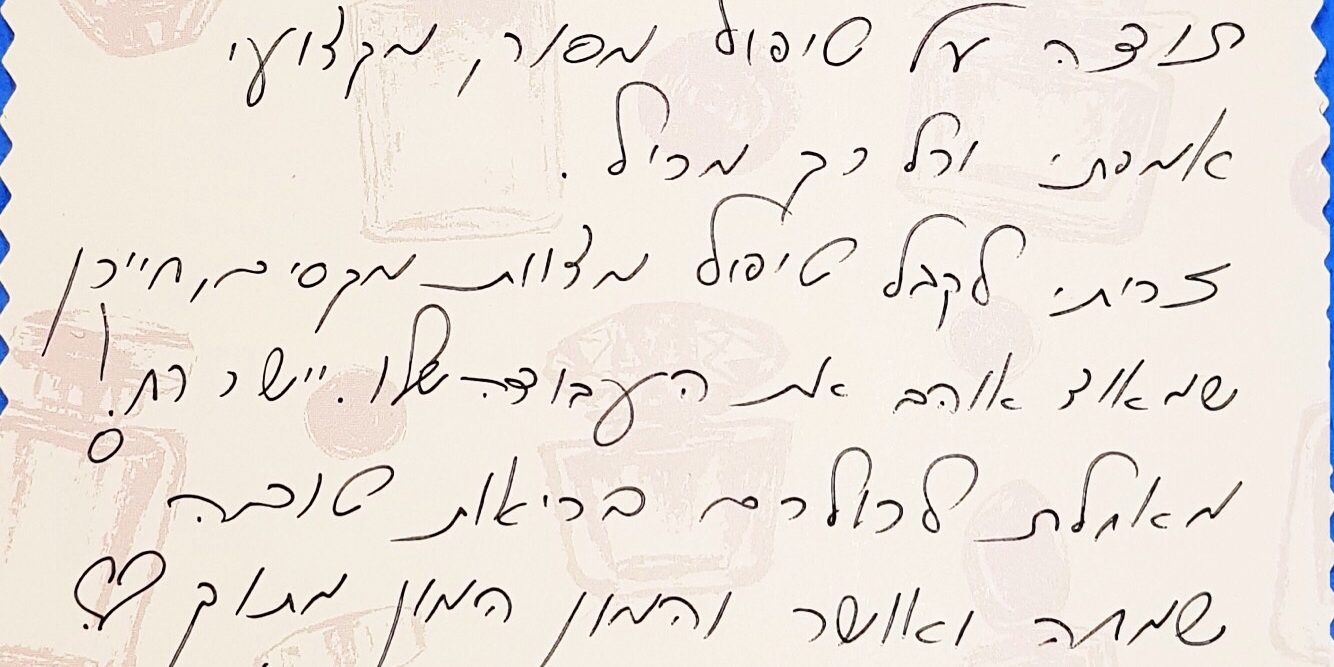 תודה על טיפול מסור, מקצועי
אמיתי וכל כך מכיל.
זכיתי לקבל טיפול מצוות מקסים, חייכן
שמאוד אוהב את העבודה שלו. יישר כח!
מאחלת לכולכם בריאות טובה
שמחה ואושר והמון המון מתוק ♡